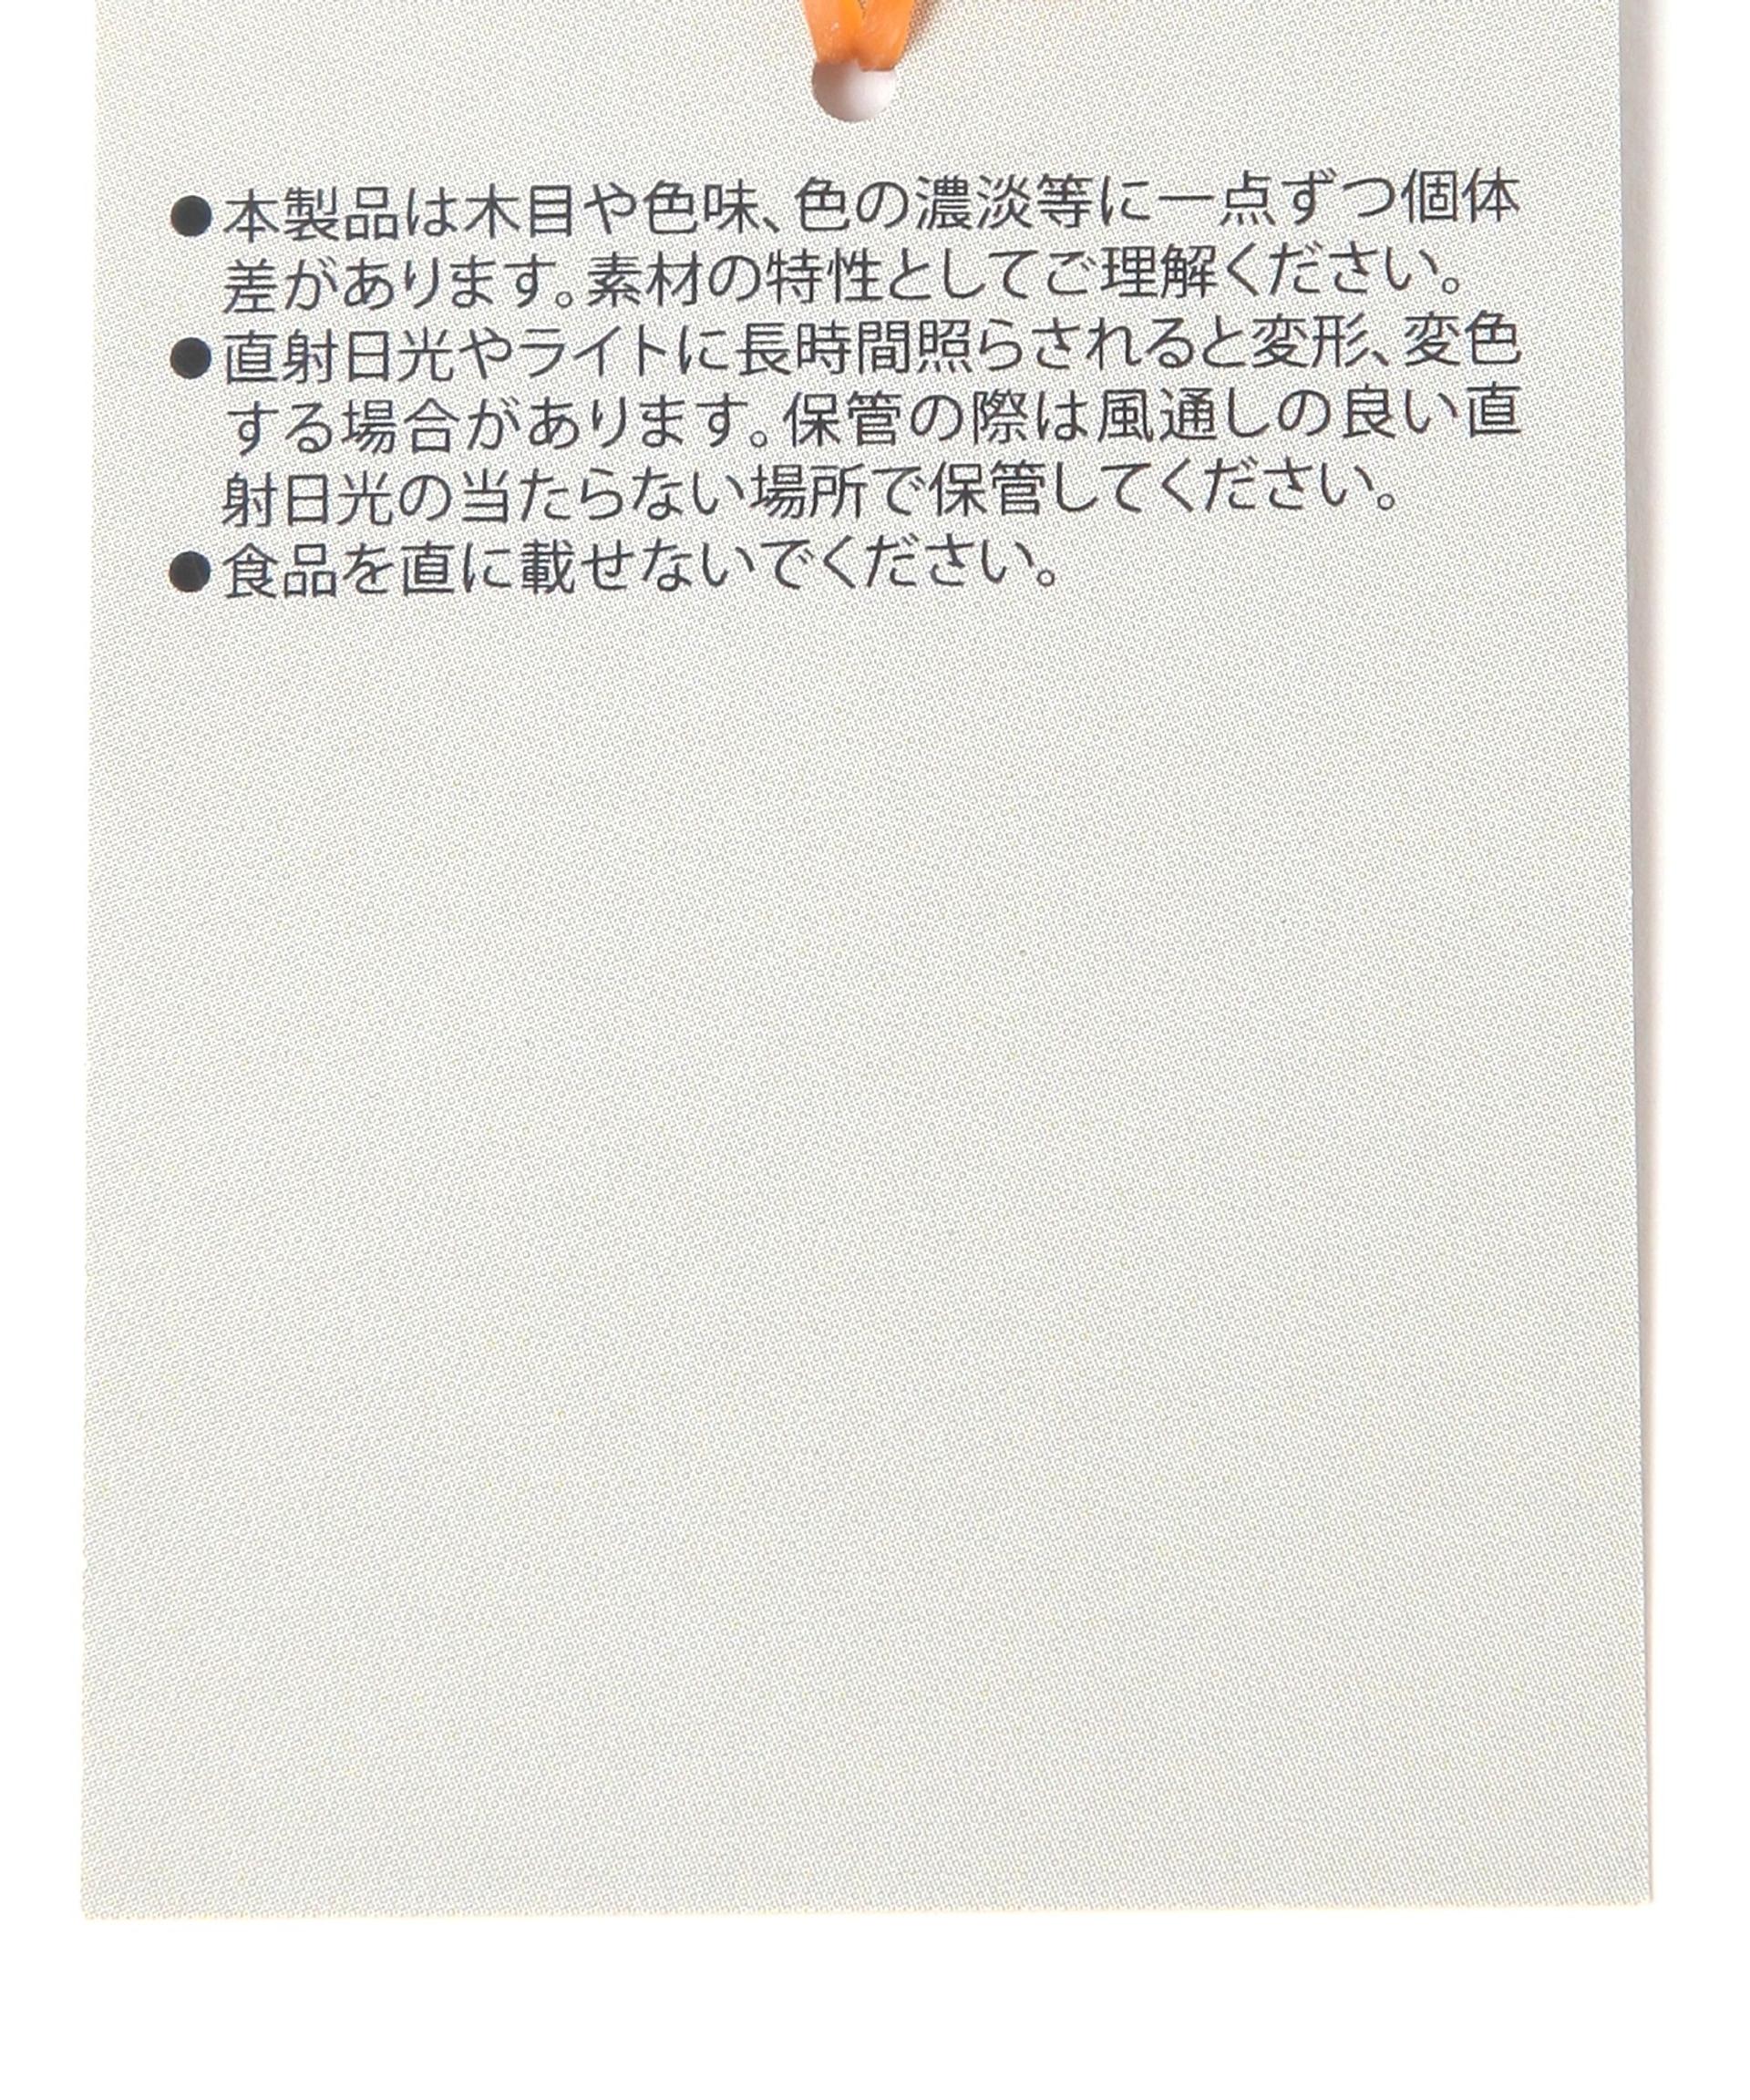 ●本製品は木目や色味、色の濃淡等に一点ずつ個体
差があります。素材の特性としてご理解ください。
●直射日光やライトに長時間照らされると変形、変色
する場合があります。保管の際は風通しの良い直
射日光の当たらない場所で保管してください。
●食品を直に載せないでください。